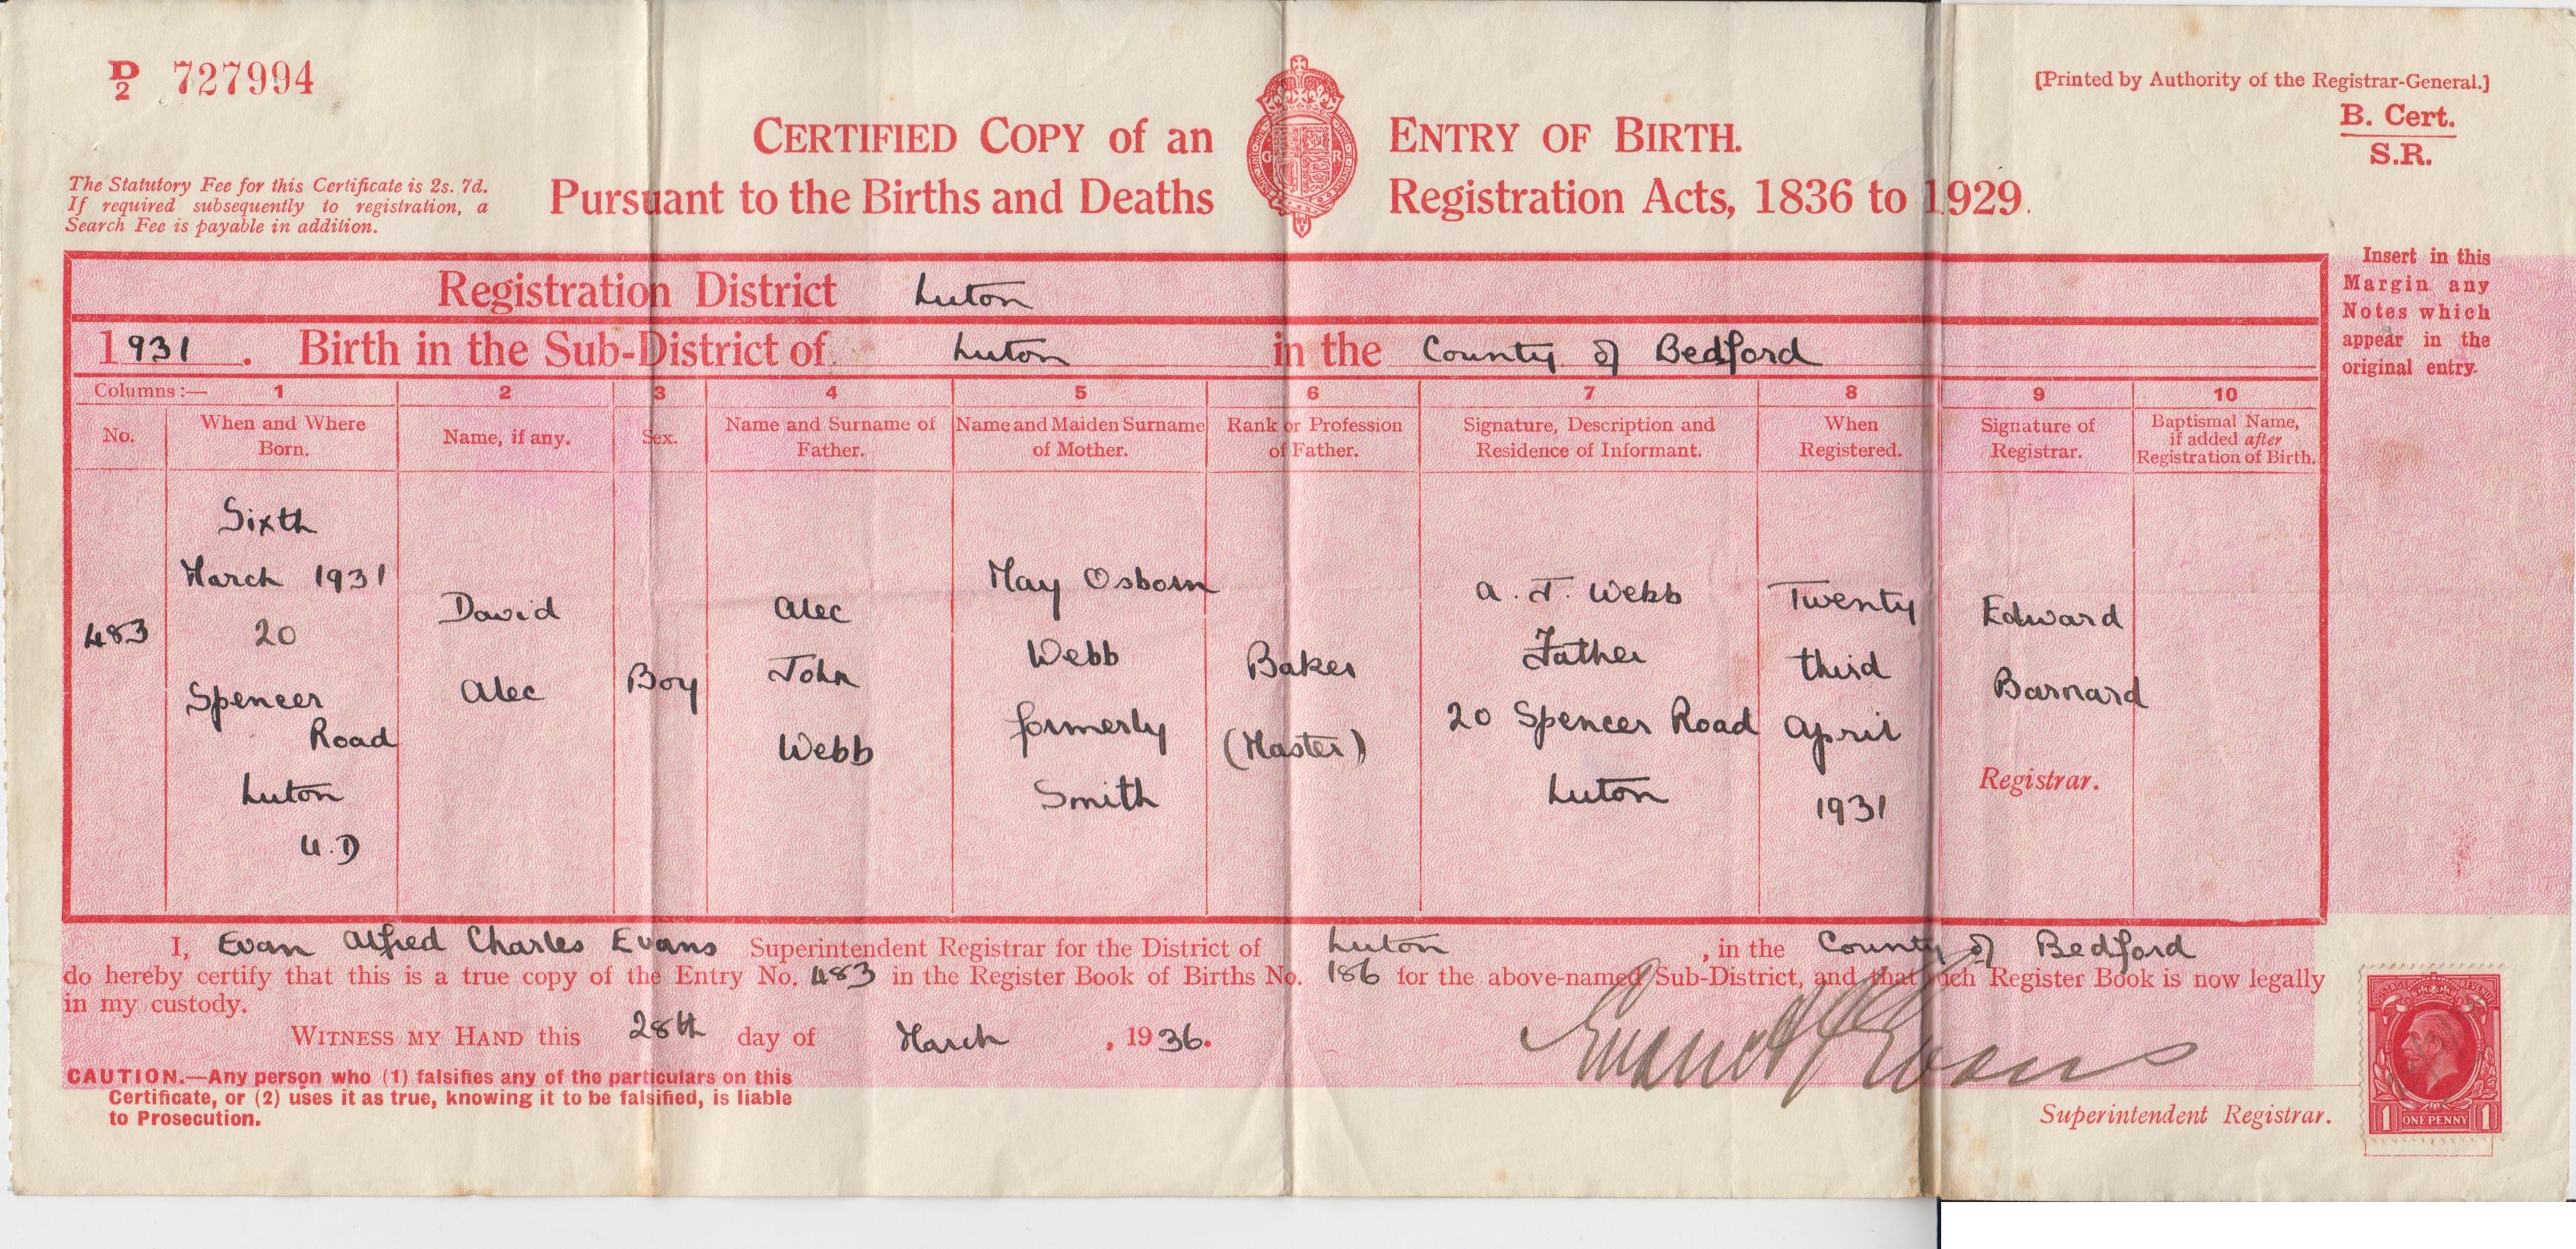 D/2 727994
[Printed by Authority of the Registrar-General.]
B. Cert.
S.R.
CERTIFIED COPY of an ENTRY OF BIRTH.
Pursuant to the Births and Deaths Registration Acts, 1836 to 1929.
G R
The Statutory Fee for this Certificate is 2s. 7d.
If required subsequently to registration, a
Search Fee is payable in addition.
Registration District Luton
1931. Birth in the Sub-District of Luton in the County of Bedford
Insert in this
Margin any
Notes which
appear in the
original entry.
Columns:— 1 2 3 4 5 6 7 8 9 10
No.
When and Where
Born.
Name, if any.
Sex.
Name and Surname of
Father.
Name and Maiden Surname
of Mother.
Rank or Profession
of Father.
Signature, Description and
Residence of Informant.
When
Registered.
Signature of
Registrar.
Baptismal Name,
if added after
Registration of Birth.
483
Sixth
March 1931
20
Spencer
Road
Luton
U.D
David
Alec
Boy
Alec
John
Webb
May Osborn
Webb
formerly
Smith
Baker
(Master)
A. J. Webb
Father
20 Spencer Road
Luton
Twenty
third
April
1931
Edward
Barnard
Registrar.
I, Evan Alfred Charles Evans Superintendent Registrar for the District of Luton, in the County of Bedford
do hereby certify that this is a true copy of the Entry No. 483 in the Register Book of Births No. 186 for the above-named Sub-District, and that such Register Book is now legally
in my custody.
WITNESS MY HAND this 28th day of March, 1936.
CAUTION.—Any person who (1) falsifies any of the particulars on this
Certificate, or (2) uses it as true, knowing it to be falsified, is liable
to Prosecution.
Evans
Superintendent Registrar.
POSTAGE REVENUE
1 ONE PENNY 1